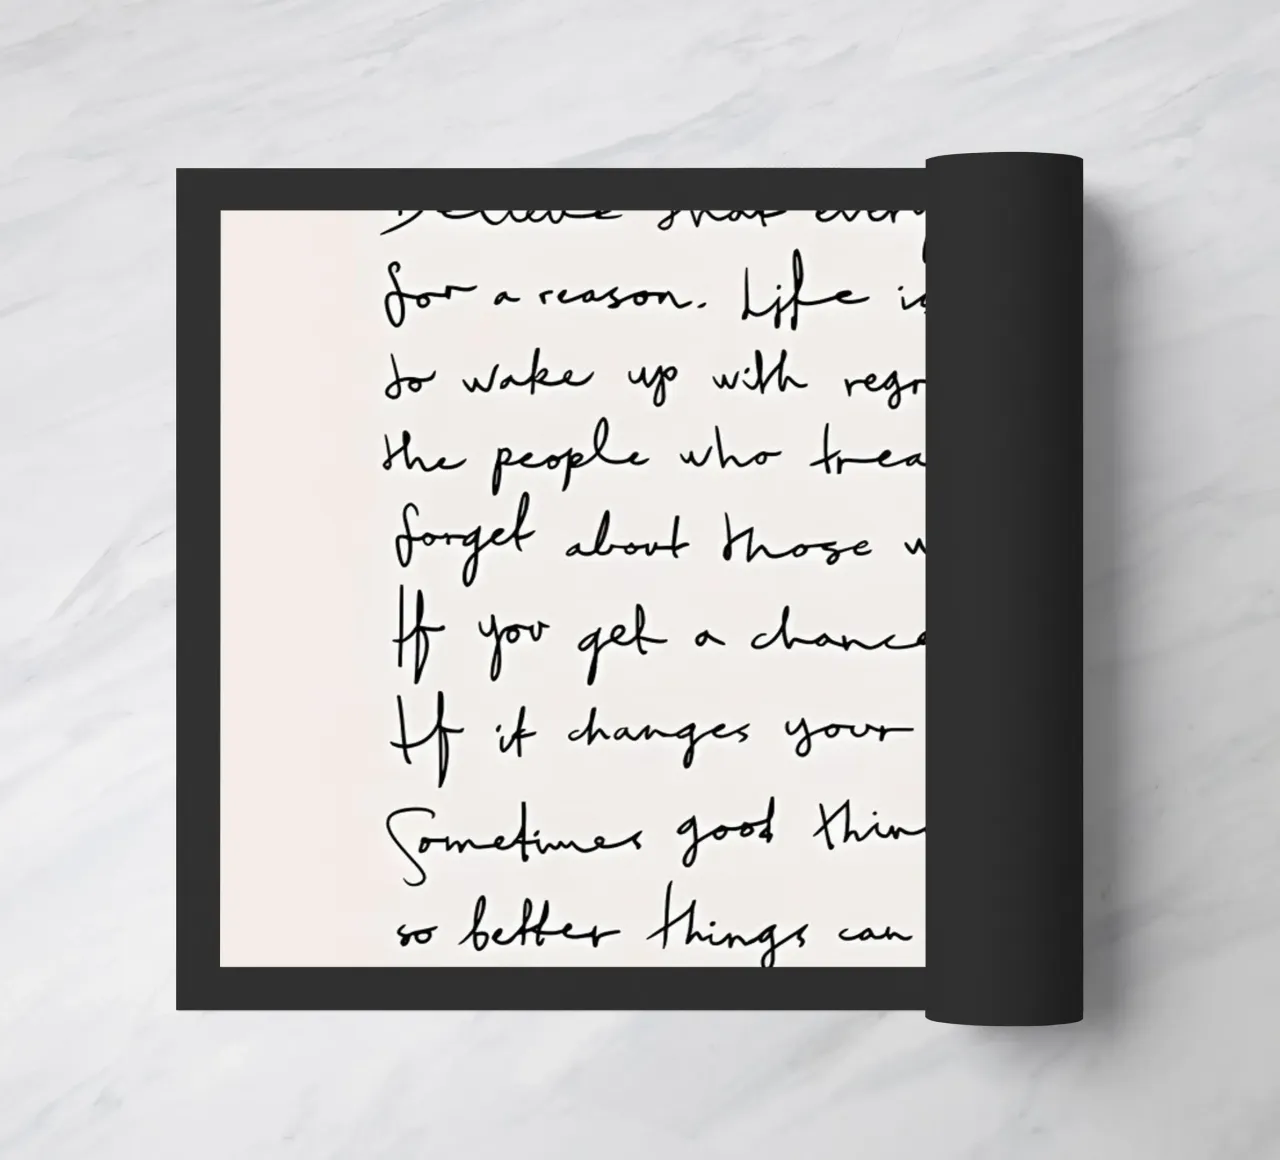 Believe that every
for a reason. Life is
to wake up with regr
the people who trea
forget about those w
If you get a chance
If it changes your
Sometimes good thin
so better things can